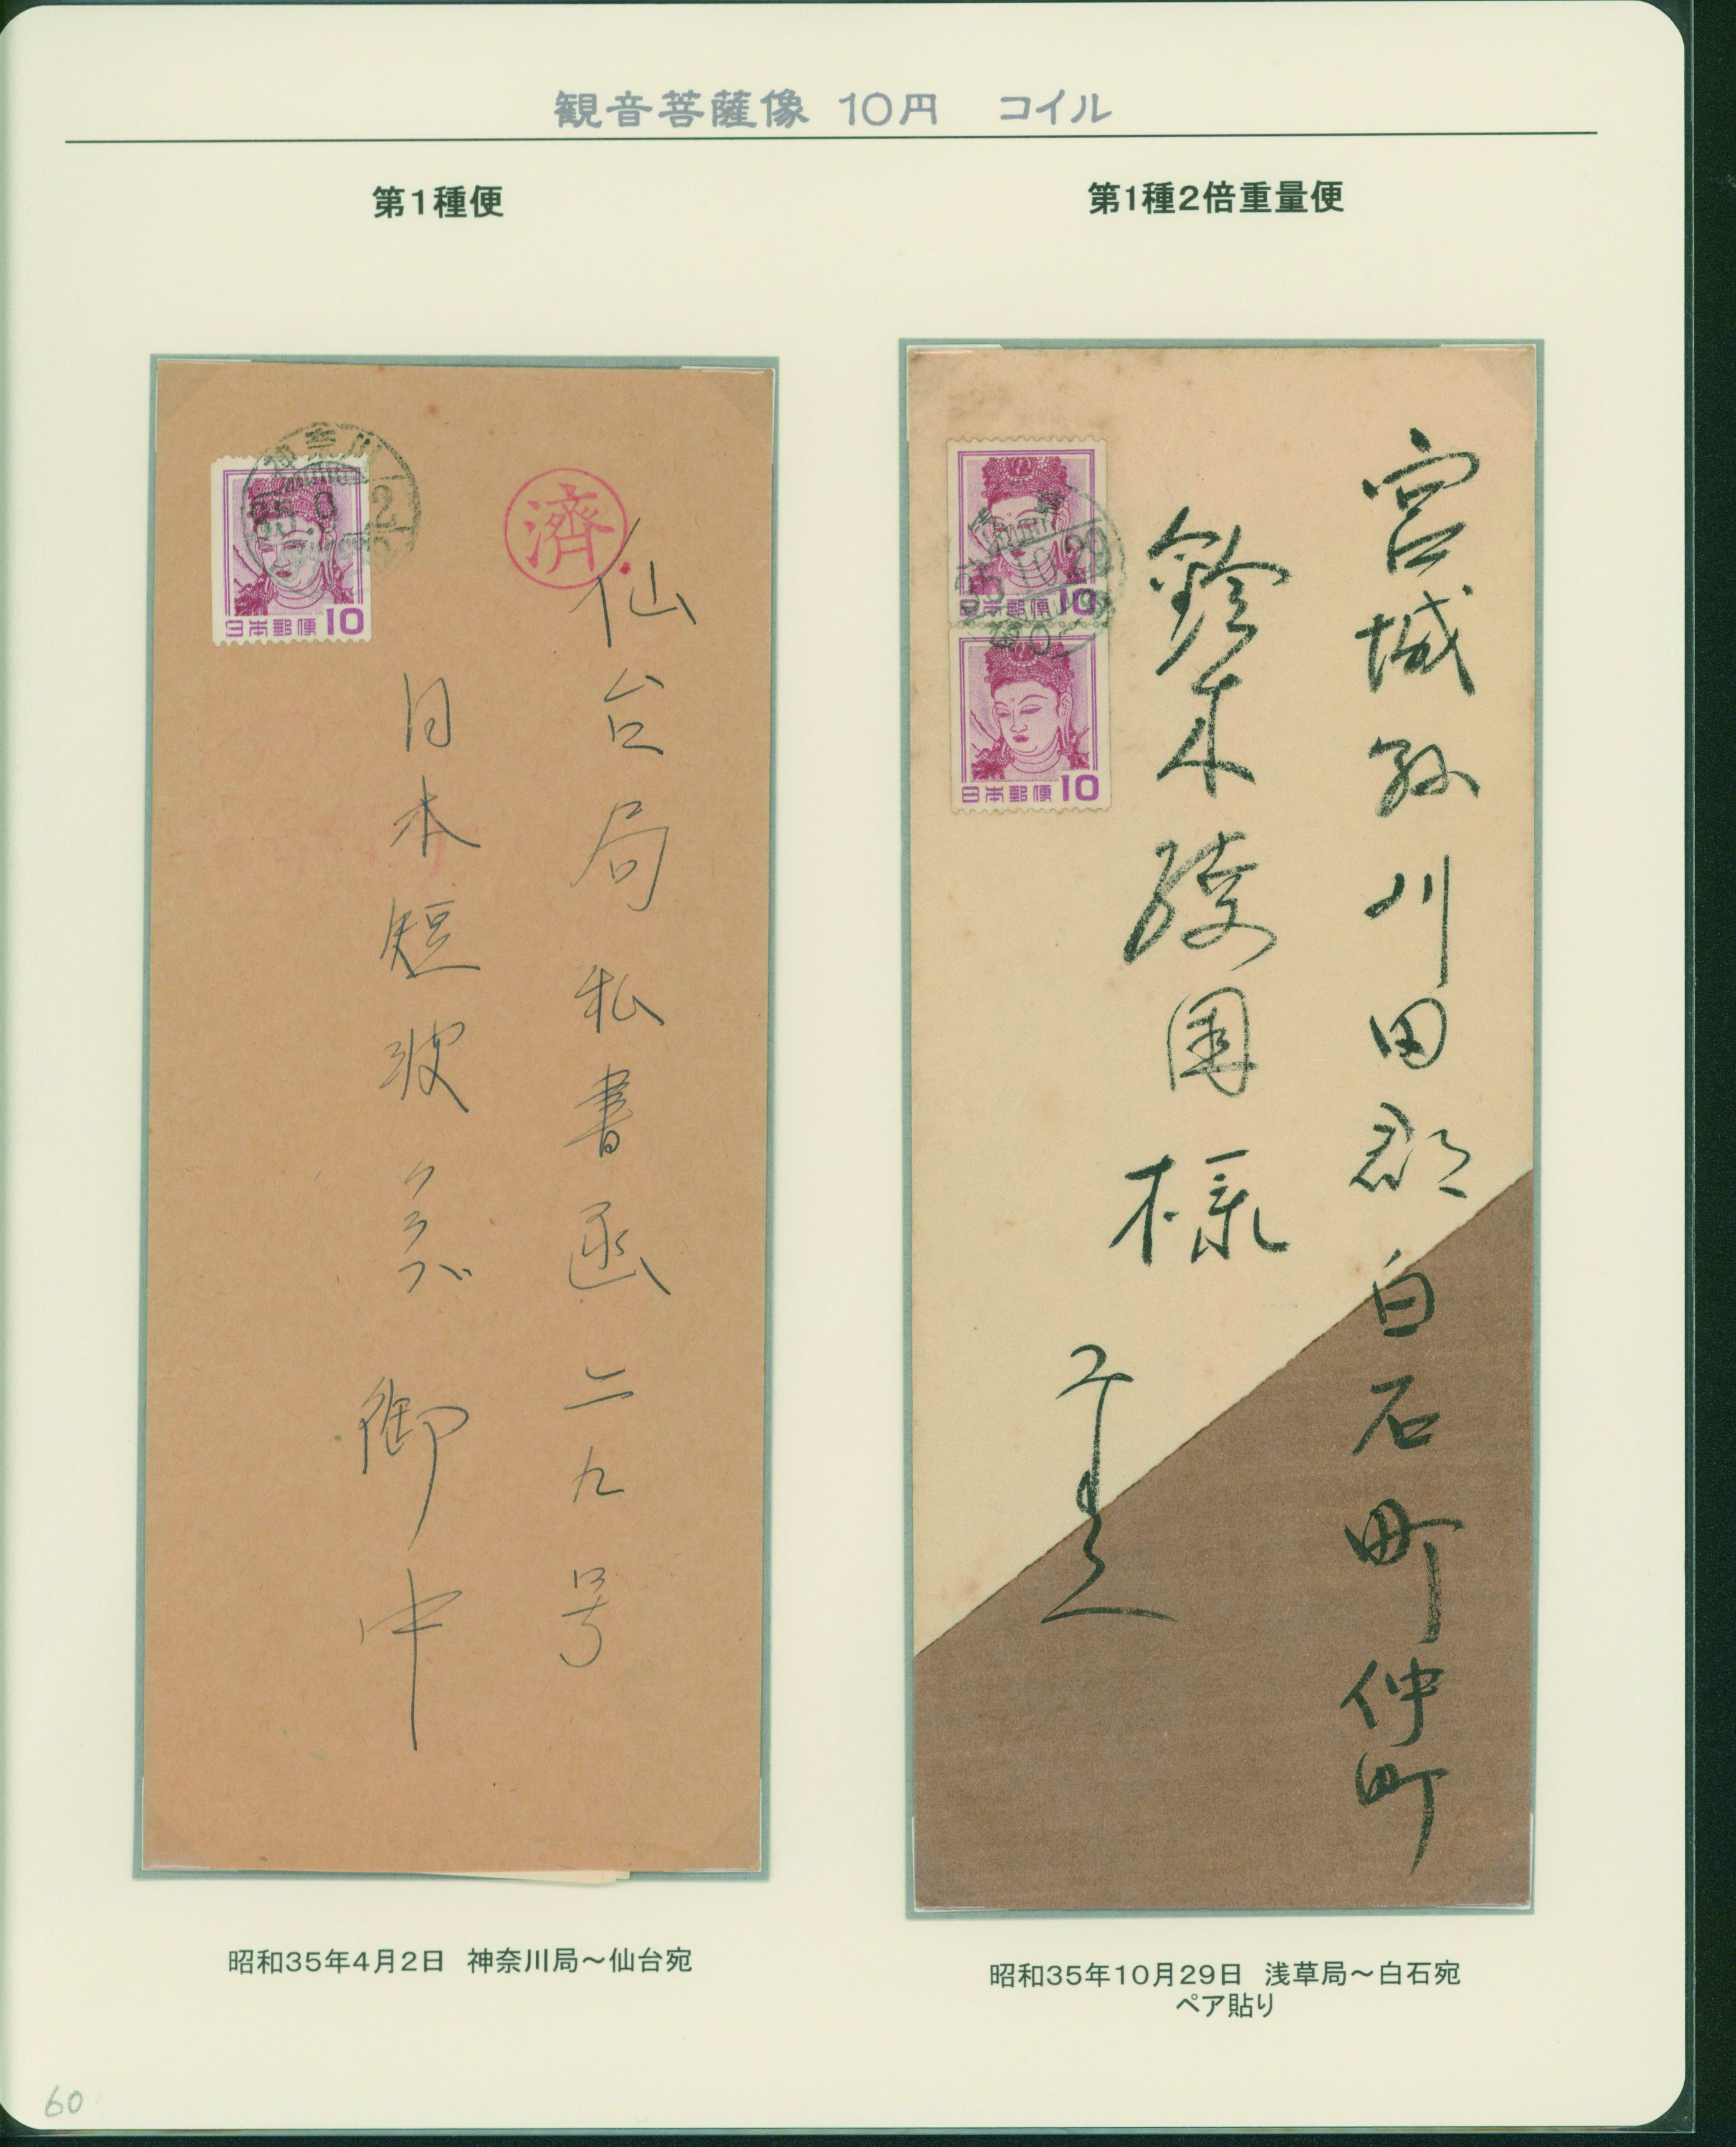 観音菩薩像 10円 コイル
第1種便
第1種2倍重量便
神奈川
35
2
日本郵便10
済
仙台局私書函二九号
日本短波クラブ御中
35.10.29
日本郵便10
日本郵便10
宮城県刈田郡白石町仲町
鈴木
園様
昭和35年4月2日 神奈川局～仙台宛
昭和35年10月29日 浅草局～白石宛
ペア貼り
60